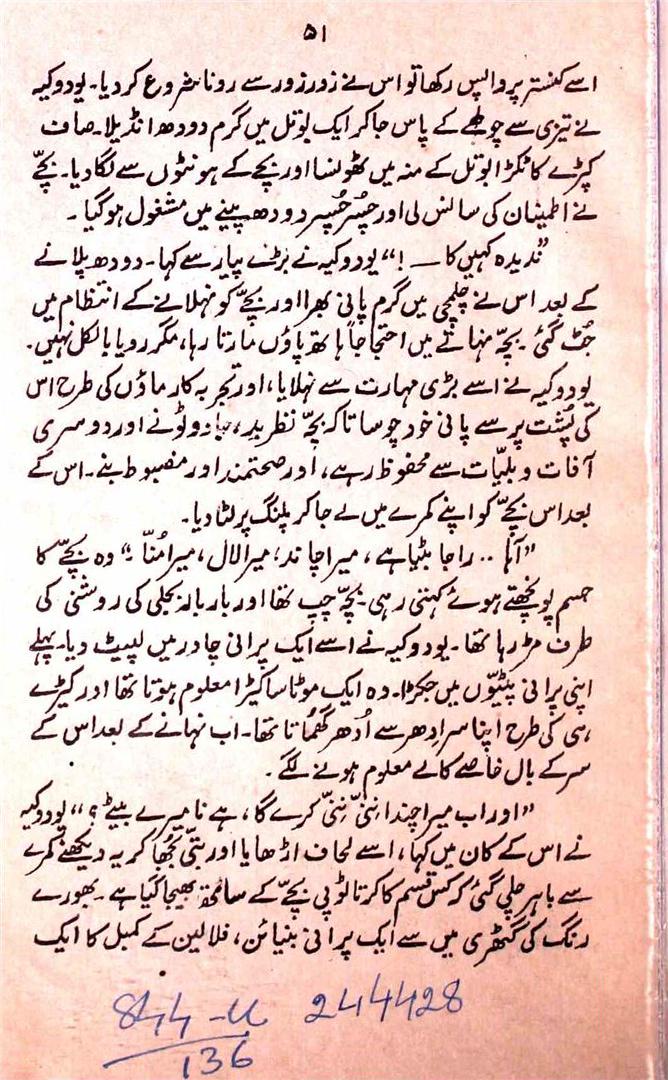 ۵۱
اسے کنستر پر واپس رکھا تو اس نے زور زور سے رونا شروع کر دیا۔ یودوکیہ
نے تیزی سے چولھے کے پاس جا کر ایک بوتل میں گرم دودھ انڈیلا۔ صاف
کپڑے کا ٹکڑا بوتل کے منہ میں ٹھونسا اور بچے کے ہونٹوں سے لگا دیا۔ بچّے
نے اطمینان کی سانس لی اور چُسر چُسر دودھ پینے میں مشغول ہو گیا۔
”ندیدہ کہیں کا — !“ یودوکیہ نے بڑے پیار سے کہا۔ دودھ پلانے
کے بعد اس نے چلمچی میں گرم پانی بھرا اور بچّے کو نہلانے کے انتظام میں
جُٹ گئی۔ بچّہ نہاتے میں احتجاجاً ہاتھ پاؤں مارتا رہا، مگر رویا بالکل نہیں۔
یودوکیہ نے اسے بڑی مہارت سے نہلایا، اور تجربہ کار ماؤں کی طرح اس
کی پُشت پر سے پانی خود چوسا تاکہ بچّہ نظرِ بد، جادو ٹونے اور دوسری
آفات و بلیّات سے محفوظ رہے، اور صحتمند اور مضبوط بنے۔ اس کے
بعد اس بچّے کو اپنے کمرے میں لے جا کر پلنگ پر لٹا دیا۔
”آہا .. راجا بٹیا ہے، میرا چاند؛ میرا لال، میرا مُنّا۔“ وہ بچّے کا
جسم پونچھتے ہوئے کہتی رہی۔ بچّہ چپ تھا اور بار بار بجلی کی روشنی کی
طرف مڑ رہا تھا۔ یودوکیہ نے اسے ایک پرانی چادر میں لپیٹ دیا۔ پہلے
اپنی پرانی پٹیّوں میں جکڑا۔ وہ ایک موٹا سا کیڑا معلوم ہوتا تھا اور کیڑے
ہی کی طرح اپنا سر اِدھر سے اُدھر گھُماتا تھا۔ اب نہانے کے بعد اس کے
سر کے بال خاصے کالے معلوم ہونے لگے۔
”اور اب میرا چندا نِنّی نِنّی کرے گا، ہے نا میرے بیٹے؟“ یودوکیہ
نے اس کے کان میں کہا، اسے لحاف اڑھایا اور بتّی بُجھا کر یہ دیکھنے کمرے
سے باہر چلی گئی کہ کس قسم کا کرتا ٹوپی بچّے کے ساتھ بھیجا گیا ہے۔ بھورے
رنگ کی گٹھری میں سے ایک پرانی بنیائن، فلالین کے کمبل کا ایک
844-U 244428
136